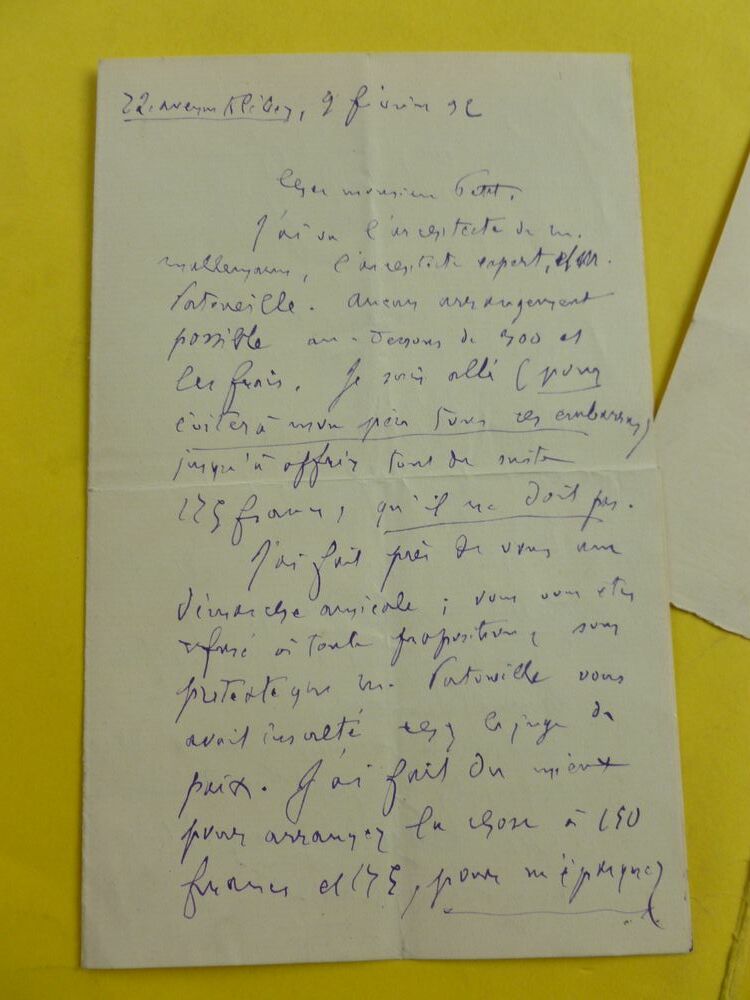 22 avenue Kléber, 9 février 92
Cher monsieur Petit,
J'ai vu l'architecte de m.
l'architecte expert, et m.
Portoville. Aucun arrangement
possible au-dessous de 300 et
les frais. Je suis allé (pour
éviter à mon père tous ces embarras)
jusqu'à offrir tout de suite
175 francs, qu'il ne doit pas.
J'ai fait près de vous une
démarche amicale ; vous vous êtes
refusé à toute proposition, sous
prétexte que m. Portoville vous
avait insulté chez le juge de
paix. J'ai fait du mieux
pour arranger la chose à 150
francs et 175, pour m'épargner